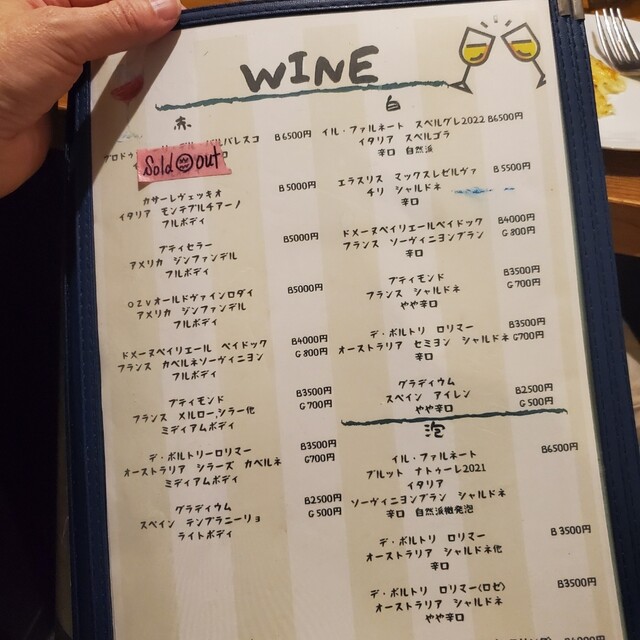 WINE
赤
バレスコ
B6500円
Sold out
カサーレヴェッキオ
B5000円
イタリア モンテプルチアーノ
フルボディ
プティセラー
B5000円
アメリカ ジンファンデル
フルボディ
OZVオールドヴァインロダイ
B5000円
アメリカ ジンファンデル
フルボディ
ドメーヌペイリエール ペイドック
B4000円
フランス カベルネソーヴィニヨン
G800円
フルボディ
プティモンド
B3500円
フランス メルロー、シラー他
G700円
ミディアムボディ
デ・ボルトリーロリマー
B3500円
オーストラリア シラーズ カベルネ
G700円
ミディアムボディ
グラディウム
B2500円
スペイン テンプラニーリョ
G500円
ライトボディ
白
イル・ファルネート スペルグレ2022
B6500円
イタリア スペルゴラ
辛口 自然派
エラスリス マックスレゼルヴァ
B5500円
チリ シャルドネ
辛口
ドメーヌペイリエールペイドック
B4000円
フランス ソーヴィニヨンブラン
G800円
辛口
プティモンド
B3500円
フランス シャルドネ
G700円
やや辛口
デ・ボルトリ ロリマー
B3500円
オーストラリア セミヨン シャルドネ
G700円
辛口
グラディウム
B2500円
スペイン アイレン
G500円
やや辛口
泡
イル・ファルネート
B6500円
ブルット ナトゥーレ2021
イタリア
ソーヴィニヨンブラン シャルドネ
辛口 自然派微発泡
デ・ボルトリ ロリマー
B3500円
オーストラリア シャルドネ他
辛口
デ・ボルトリ ロリマー(ロゼ)
B3500円
オーストラリア シャルドネ
やや辛口